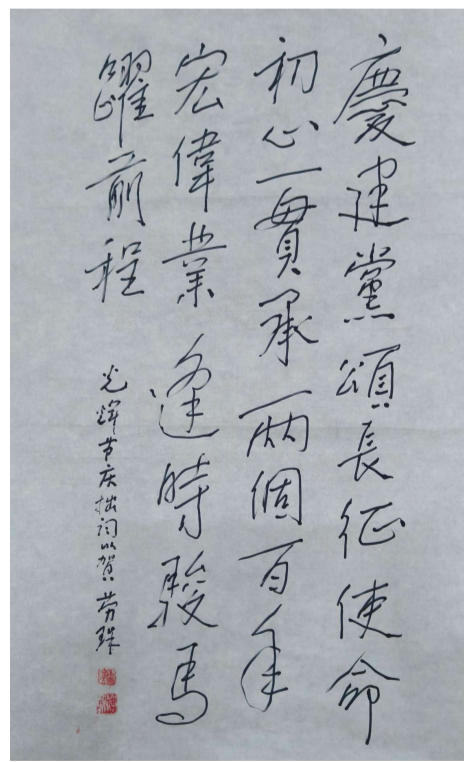 慶建黨頌長征使命
初心一貫承兩個百年
宏偉業逢時駿馬
躍前程
光輝节庆拙词以贺 劳珠